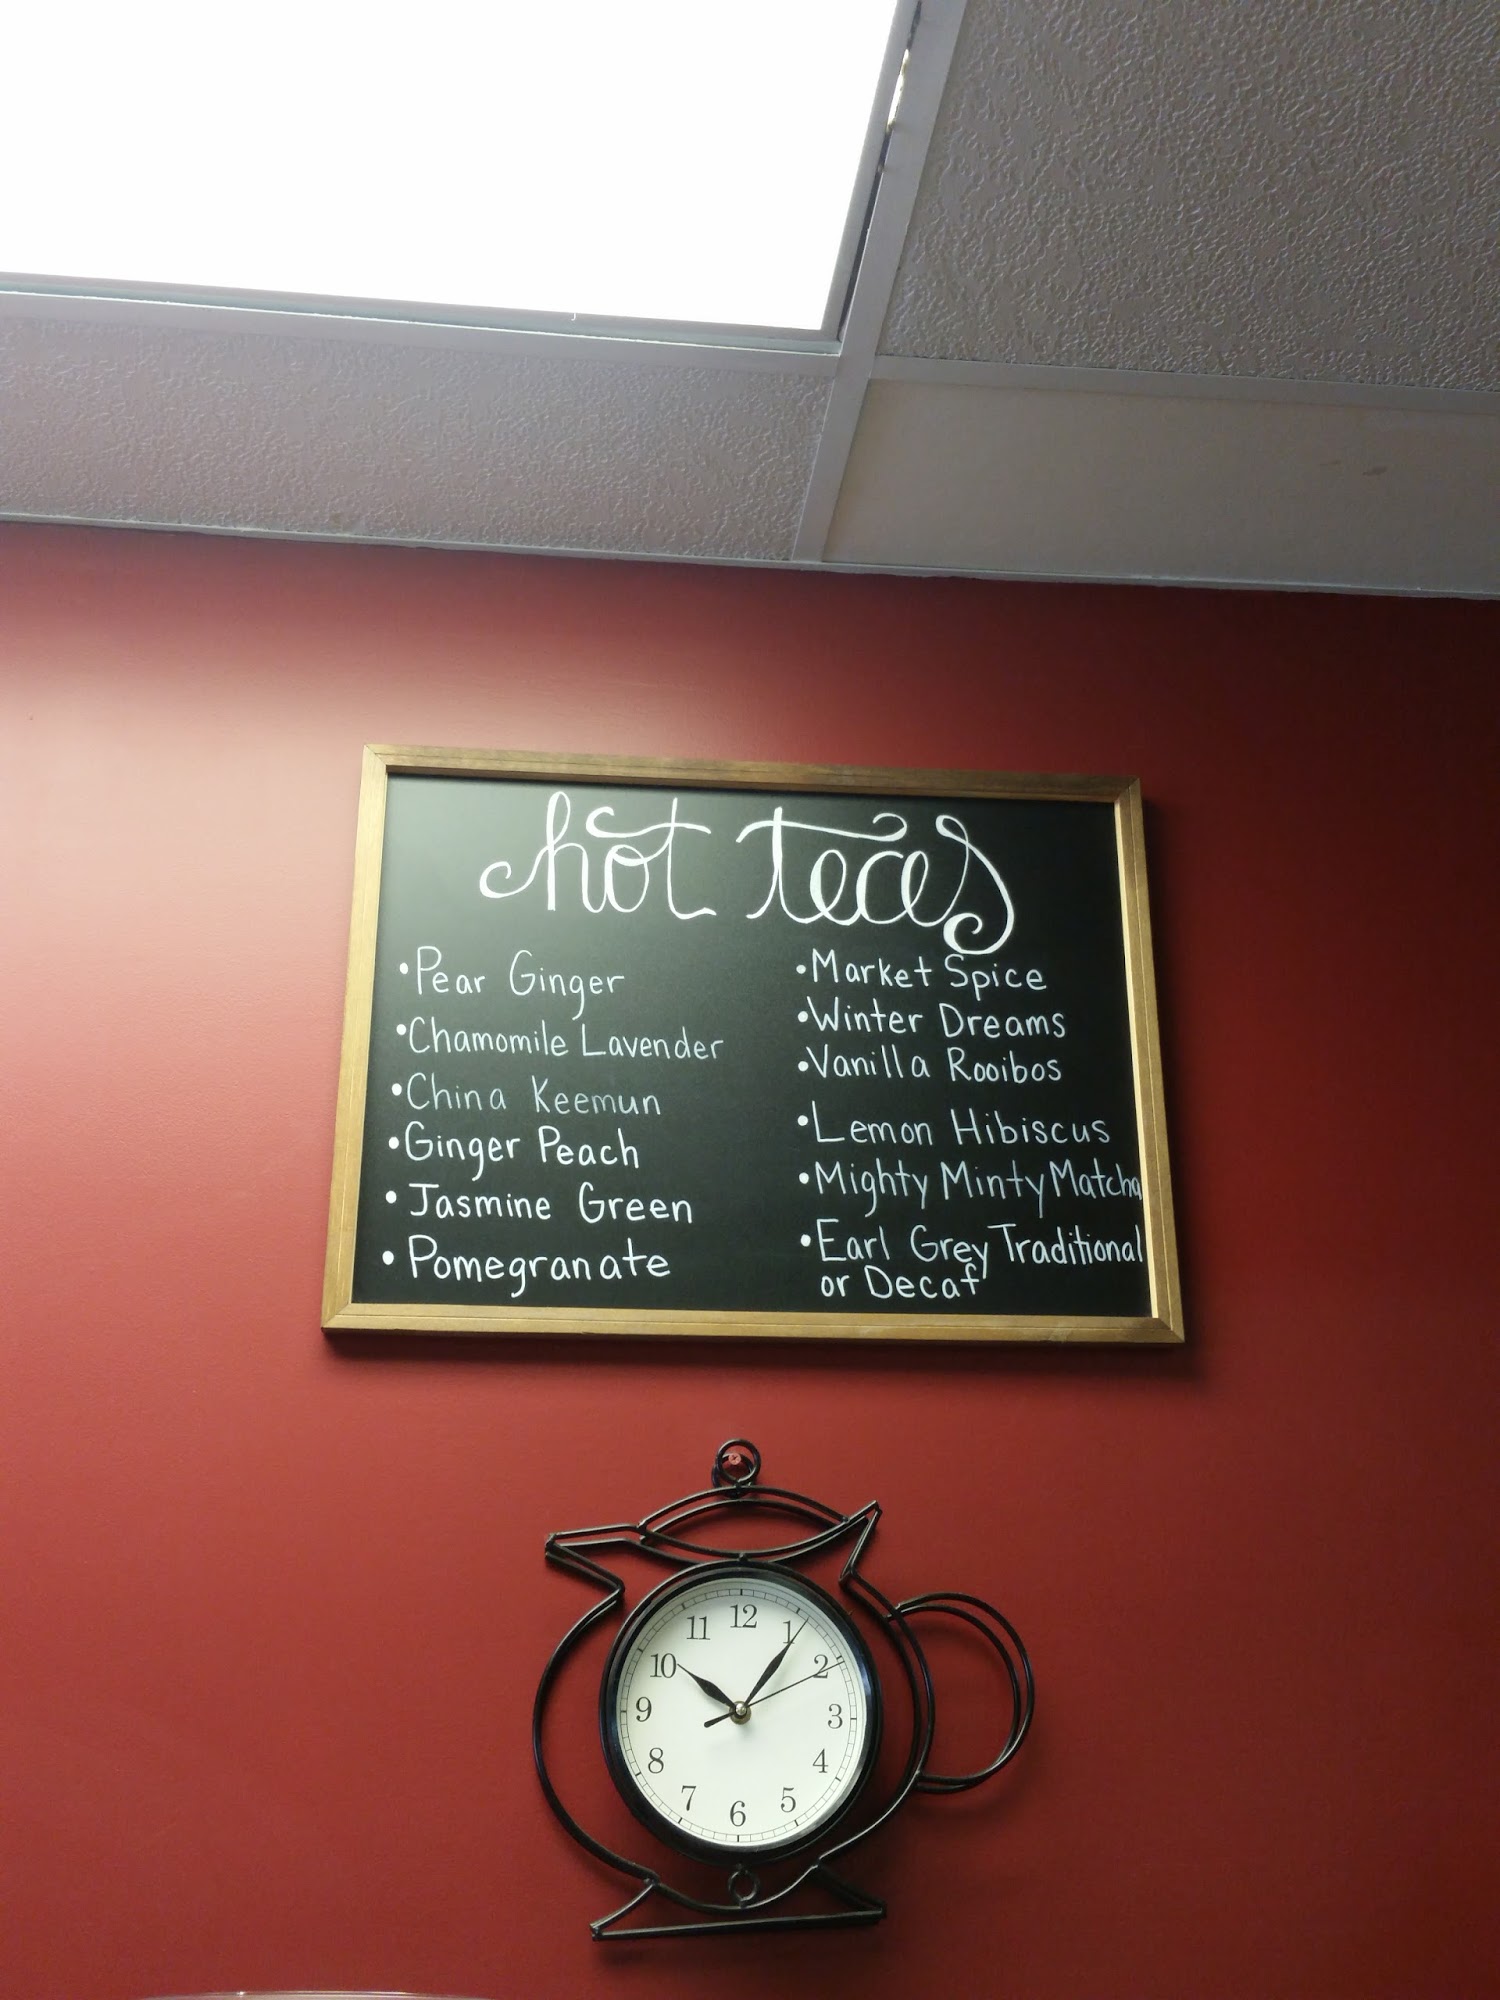 hot teas
•Pear Ginger
•Chamomile Lavender
•China Keemun
•Ginger Peach
•Jasmine Green
•Pomegranate
•Market Spice
•Winter Dreams
•Vanilla Rooibos
•Lemon Hibiscus
•Mighty Minty Matcha
•Earl Grey Traditional
or Decaf
12
1
2
3
4
5
6
7
8
9
10
11